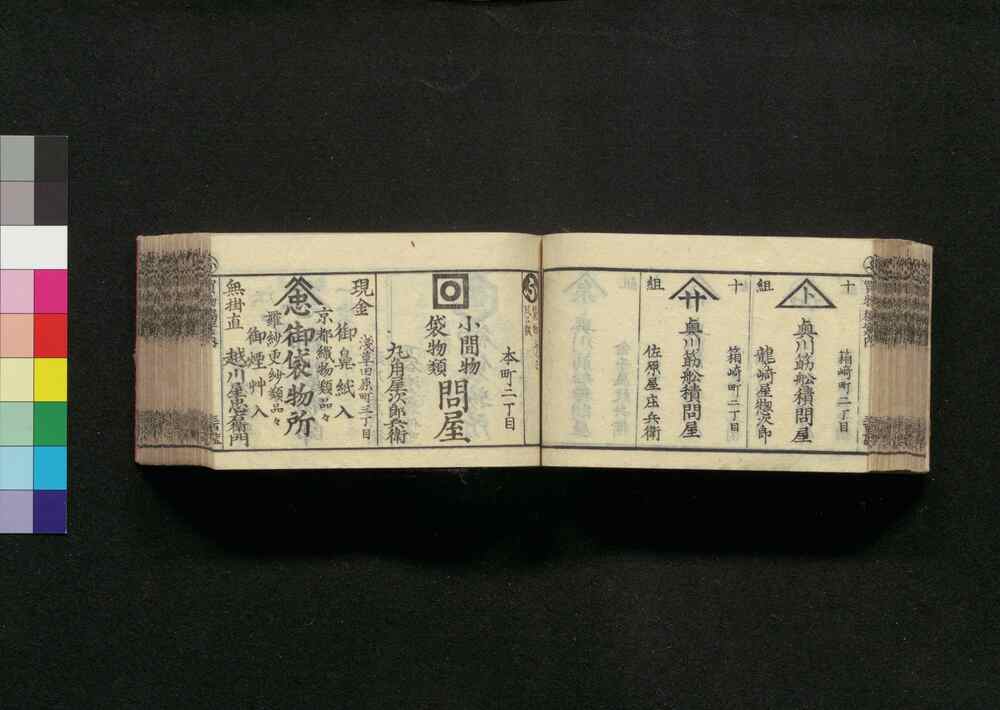 十組
箱崎町二丁目
ト
奥川筋舩積問屋
龍崎屋惣次郎
十組
箱崎町二丁目
廿
奥川筋舩積問屋
佐原屋庄兵衛
本町二丁目
小間物
袋物類
問屋
丸角屋次郎兵衛
浅草田原町三丁目
現金
御鼻紙入
京都織物類品々
忠
御袋物所
羅紗更紗類品々
御煙艸入
無掛直
越川屋忠右衛門